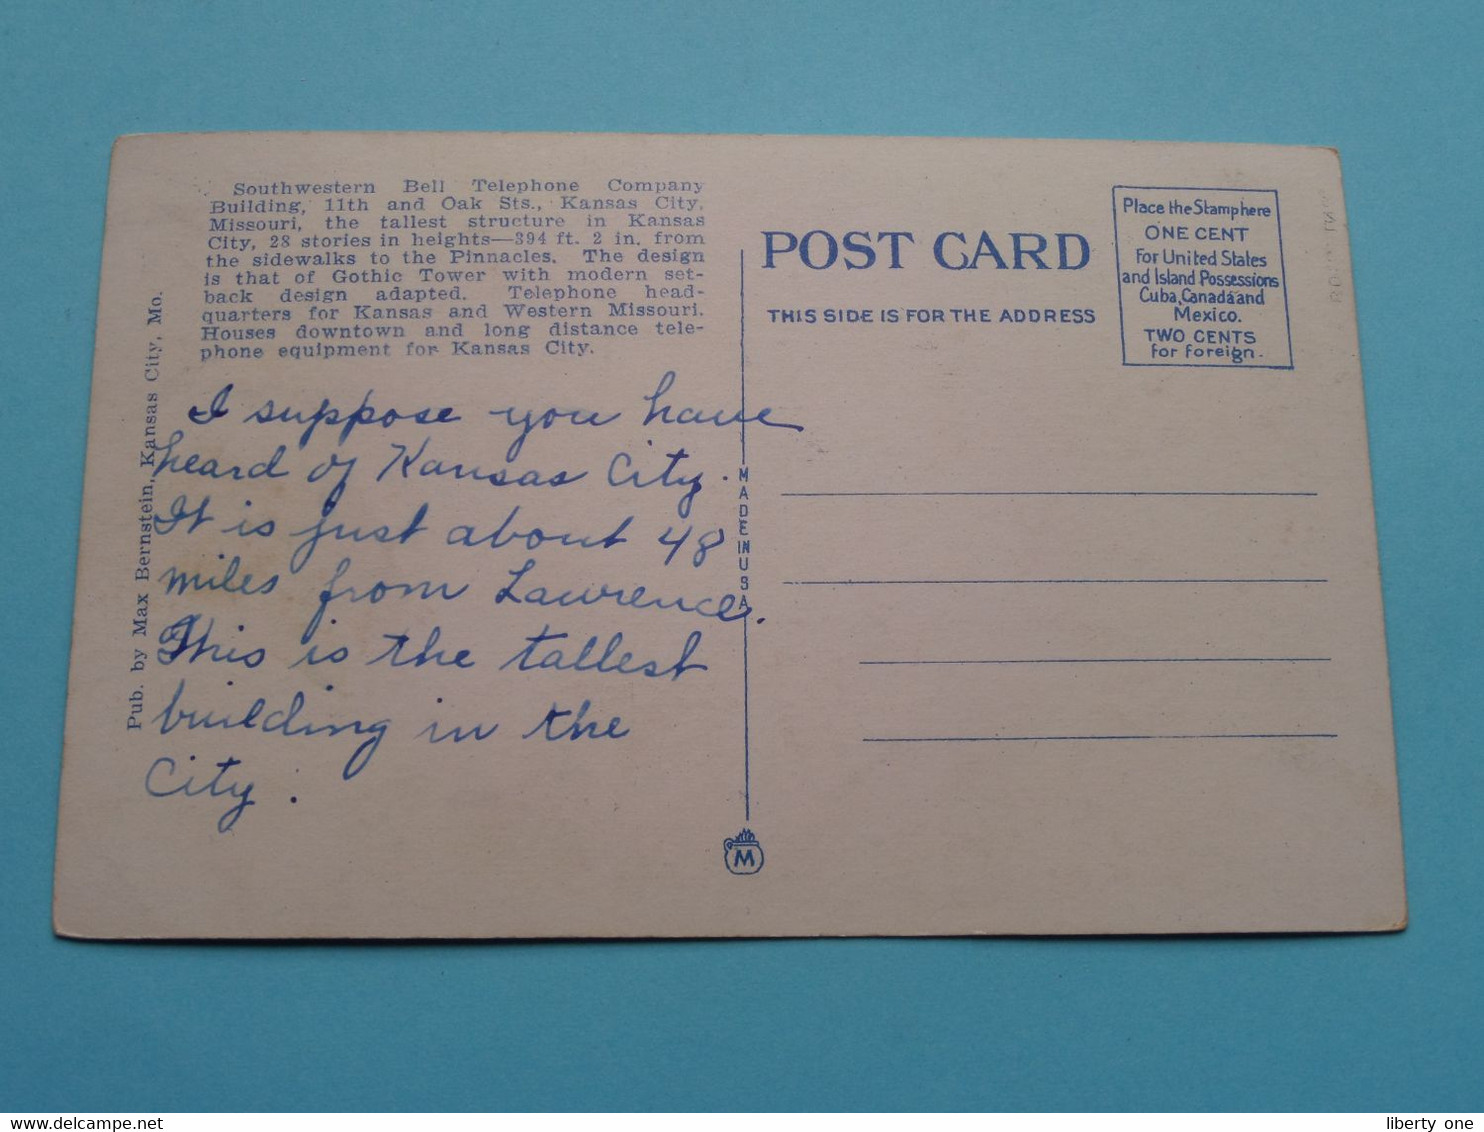 Southwestern Bell Telephone Company
Building, 11th and Oak Sts., Kansas City,
Missouri, the tallest structure in Kansas
City, 28 stories in heights—394 ft. 2 in. from
the sidewalks to the Pinnacles. The design
is that of Gothic Tower with modern set-
back design adapted. Telephone head-
quarters for Kansas and Western Missouri.
Houses downtown and long distance tele-
phone equipment for Kansas City.
Pub. by Max Bernstein, Kansas City, Mo.
I suppose you have
heard of Kansas City.
It is just about 48
miles from Lawrence.
This is the tallest
building in the
City.
MADE IN USA
M
POST CARD
THIS SIDE IS FOR THE ADDRESS
Place the Stamp here
ONE CENT
For United States
and Island Possessions
Cuba, Canada and
Mexico.
TWO CENTS
for foreign.
liberty one